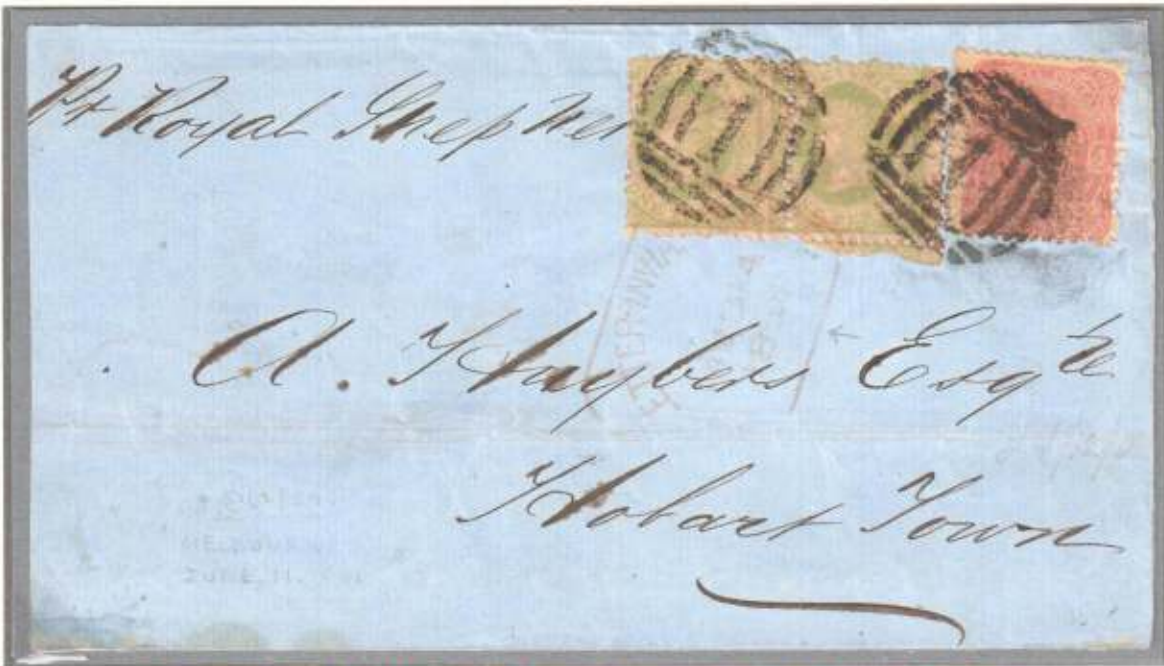 Pr Royal Shepher
A. Huybers Esqre
Hobart Town
MELBOURNE
JUNE 11.